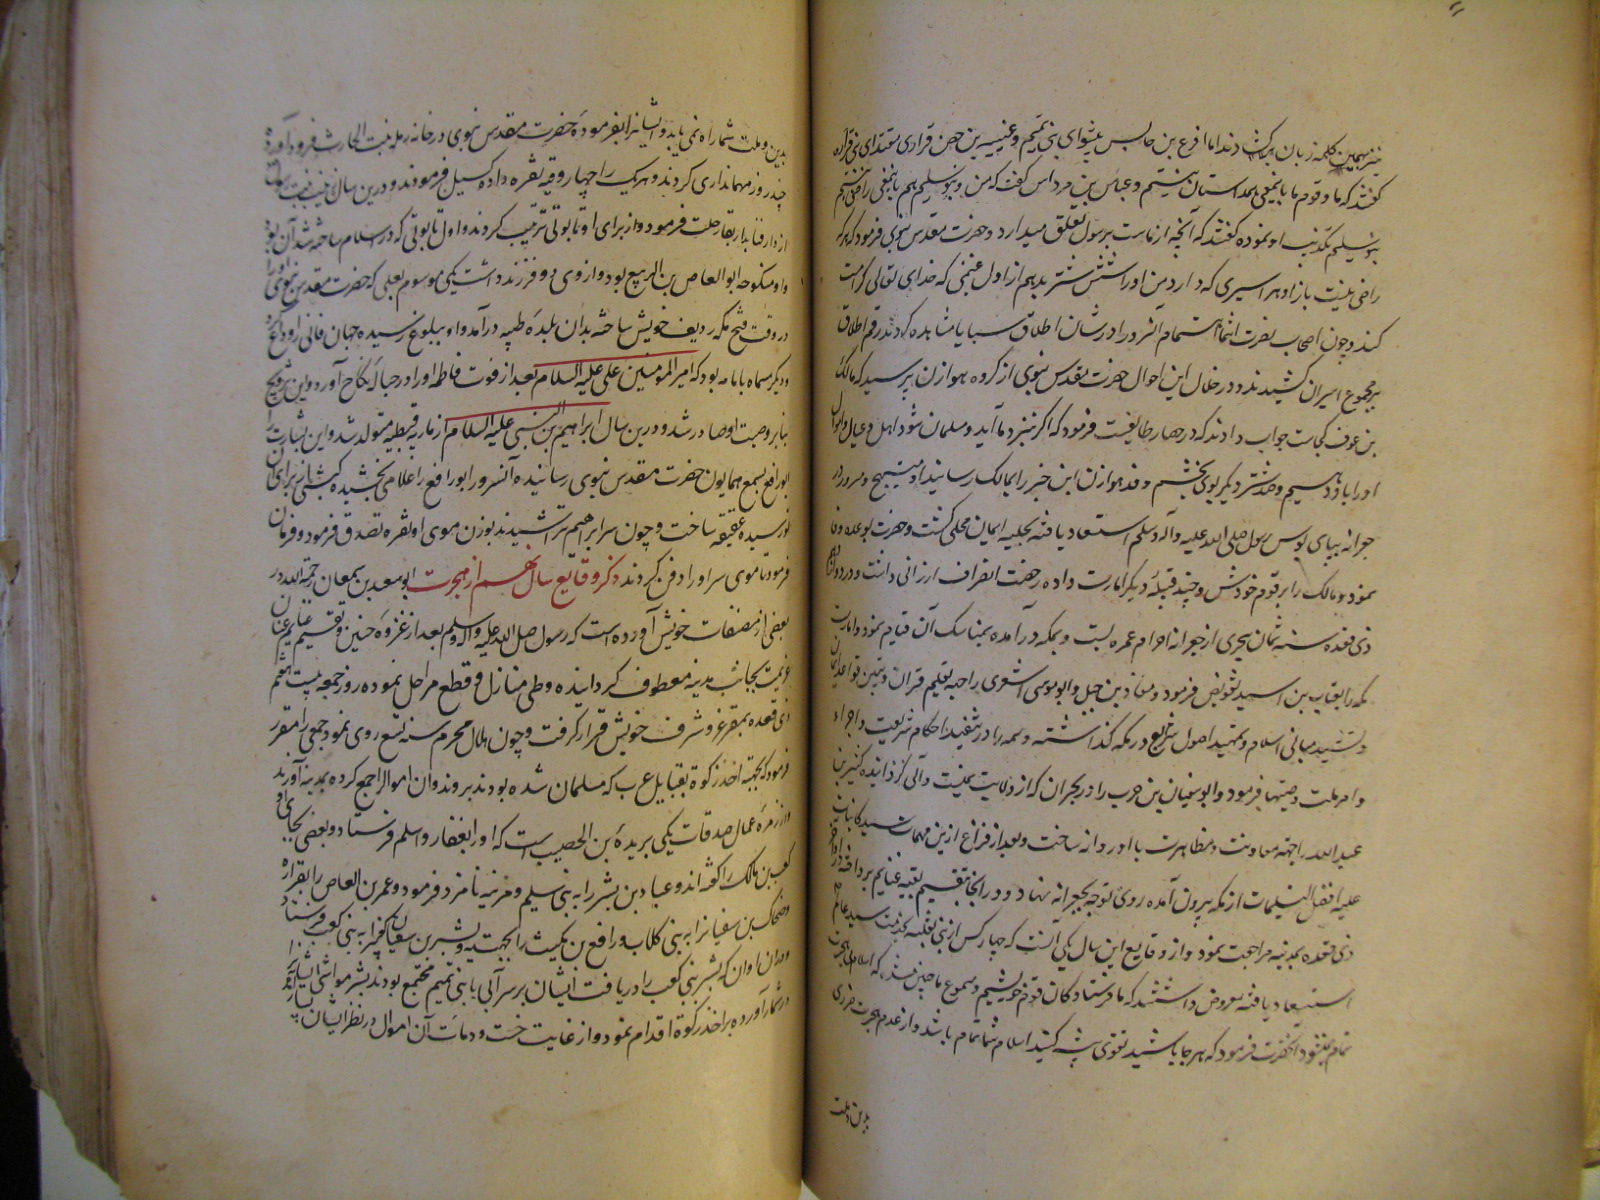 نیز بهمین کلمه زبان بر کشادند اما اقرع بن حابس پیشوای بنی تمیم و عیینه بن حصن فزاری مقتدای بنی فزاره
گفتند که ما و قوم ما باینمعنی همداستان نیستیم و عباس بن مرداس گفت که من و بنو سلیم هم باینمعنی راضی نیستیم
بنو سلیم تکذیب او نموده گفتند که آنچه از ماست برسول تعلق میدارد و حضرت مقدس نبوی فرمود که هر که
راضی نیست باز او هر اسیری که دارد من او را شش شتر بدهم از اول غنیمتی که خدای تعالی کرامت
کند و چون اصحاب نصرت انتما اهتمام آنسرور را در شان اطلاق سبایا مشاهده کردند رقم اطلاق
بر مجموع اسیران کشیدند و در خلال این احوال حضرت مقدس نبوی از گروه هوازن پرسید که مالک
بن عوف کجاست جواب دادند که در حصار طایفست فرمود که اگر نزد ما آید و مسلمان شود اهل و عیال و اموال
او را باو دهیم و صد شتر دیگر بوی بخشم وفد هوازن این خبر را بمالک رسانیدند او مبتهج و مسرور در
جعرانه بپای بوس رسول صلی الله علیه و آله و سلم استسعاد یافته بحلیه ایمان محلی گشت و حضرت بوعده وفا
نمود و مالک را بر قوم خودش و چند قبیلهٔ دیگر امارت داده رخصت انصراف ارزانی داشت و در دوازدهم
ذی قعده سنه ثمان هجری از جعرانه احرام عمره بست و بمکه در آمده بمناسک آن قیام نمود و امارت
مکه را بعتاب بن اسید تفویض فرمود و معاذ بن جبل و ابو موسی اشعری را جهه تعلیم قرآن و تبیین قواعد ایمان
و تشیید مبانی اسلام و تمهید اصول شرایع در مکه گذاشته و همه را در تنفیذ احکام شریعت و اجراء
اوامر ملت وصیتها فرمود و ابو سفیان بن حرب را در نجران که از ولایت یمنست والی گردانیده
عبد الله را جهه معاونت و مظاهرت با او روانه ساخت و بعد از فراغ ازین مهمات سید کاینات
علیه افضل التسلیمات از مکه بیرون آمده روی توجه بجعرانه نهاد و در آنجا بتقسیم بقیه غنایم پرداخته در اواخر
ذی قعده بمدینه مراجعت نمود و از وقایع این سال یکی آنست که چهار کس از بنی ثعلبه بخدمت سید عالم
استسعاد یافته معروض داشتند که ما فرستادگان قوم خویشیم و مسموع ما چنین شد که اسلام بی هجرت
تمام نمیشود آنحضرت فرمود که هر جا باشید تقوی پیشه کنید اسلام شما تمام باشد و از عدم هجرت ضرری
بدین و ملت
بدین و ملت شما راه نمی یابد و ایشانرا بفرمودهٔ حضرت مقدس نبوی در خانه رمله بنت الحارث فرود آورده
چند روز مهمانداری کردند و هر یک را چهار وقیه نقره داده گسیل فرمودند و درین سال زینب بنت رسول
از دار فنا بدار بقا رحلت فرمود و از برای او تابوتی ترتیب کردند و اول تابوتی که در اسلام ساخته شد آن بود
و او منکوحه ابو العاص بن الربیع بود و از وی دو فرزند داشت یکی موسوم بعلی که حضرت مقدس نبوی او را
در وقت فتح مکه ردیف خویش ساخته بدان بلدهٔ طیبه درآمد و او ببلوغ نرسیده جهان فانی را وداع کرد
و دیگر مسماه بامامه بود که امیر المؤمنین علی علیه السلام بعد از فوت فاطمه او را در حبالهٔ نکاح آورد و این تزویج
بنابر وصیت او صادر شد و درین سال ابراهیم بن النبی علیه السلام از ماریه قبطیه متولد شد و این بشارت را
ابو رافع بسمع همایون حضرت مقدس نبوی رسانیده آنسرور ابو رافع را غلامی بخشیده گبشی از برای آن
نو رسیده عقیقه ساخت و چون سر ابراهیم تراشیدند بوزن موی او نقره تصدق فرمود و فرمان
فرمود تا موی سر او را دفن کردند ذکر وقایع سال نهم از هجرت ابو سعد بن سمعان رحمة الله در
بعضی از مصنفات خویش آورده است که رسول صلی الله علیه و آله و سلم بعد از غزوهٔ حنین و تقسیم غنایم عنان
عزیمت بجانب مدینه معطوف گردانیده و طی منازل و قطع مراحل نموده روز جمعه بیست هفتم
ذی قعده بمقر عز و شرف خویش قرار گرفت و چون هلال محرم سنه تسع روی نمود جمعی را مقرر
فرمود که بجهته اخذ زکوة بقبایل عرب که مسلمان شده بودند بروند و آن اموال را جمع کرده بمدینه آورند
و از زمرهٔ عمال صدقات یکی بریدهٔ بن الحصیب است که او را بغفار و اسلم فرستاد و بعضی بجای او
کعب بن مالک را گفته اند و عباد بن بشر را به بنی سلیم و مزینه نامزد فرمود و عمرو بن العاص را بفزاره
و ضحاک بن سفیانرا به بنی کلاب و رافع بن مکیث را بجهینه و بشر بن سفیان کعبی را به بنی کعب فرستاد
و در آن اوان که بشر بنی کعب را دریافت ایشان بر سر آبی با بنی تمیم مجتمع بودند بشر مواشی ایشانرا
در شمار آورده بر اخذ زکوة اقدام نمود و از غایت خست و دمامت آن اموال در نظر ایشان